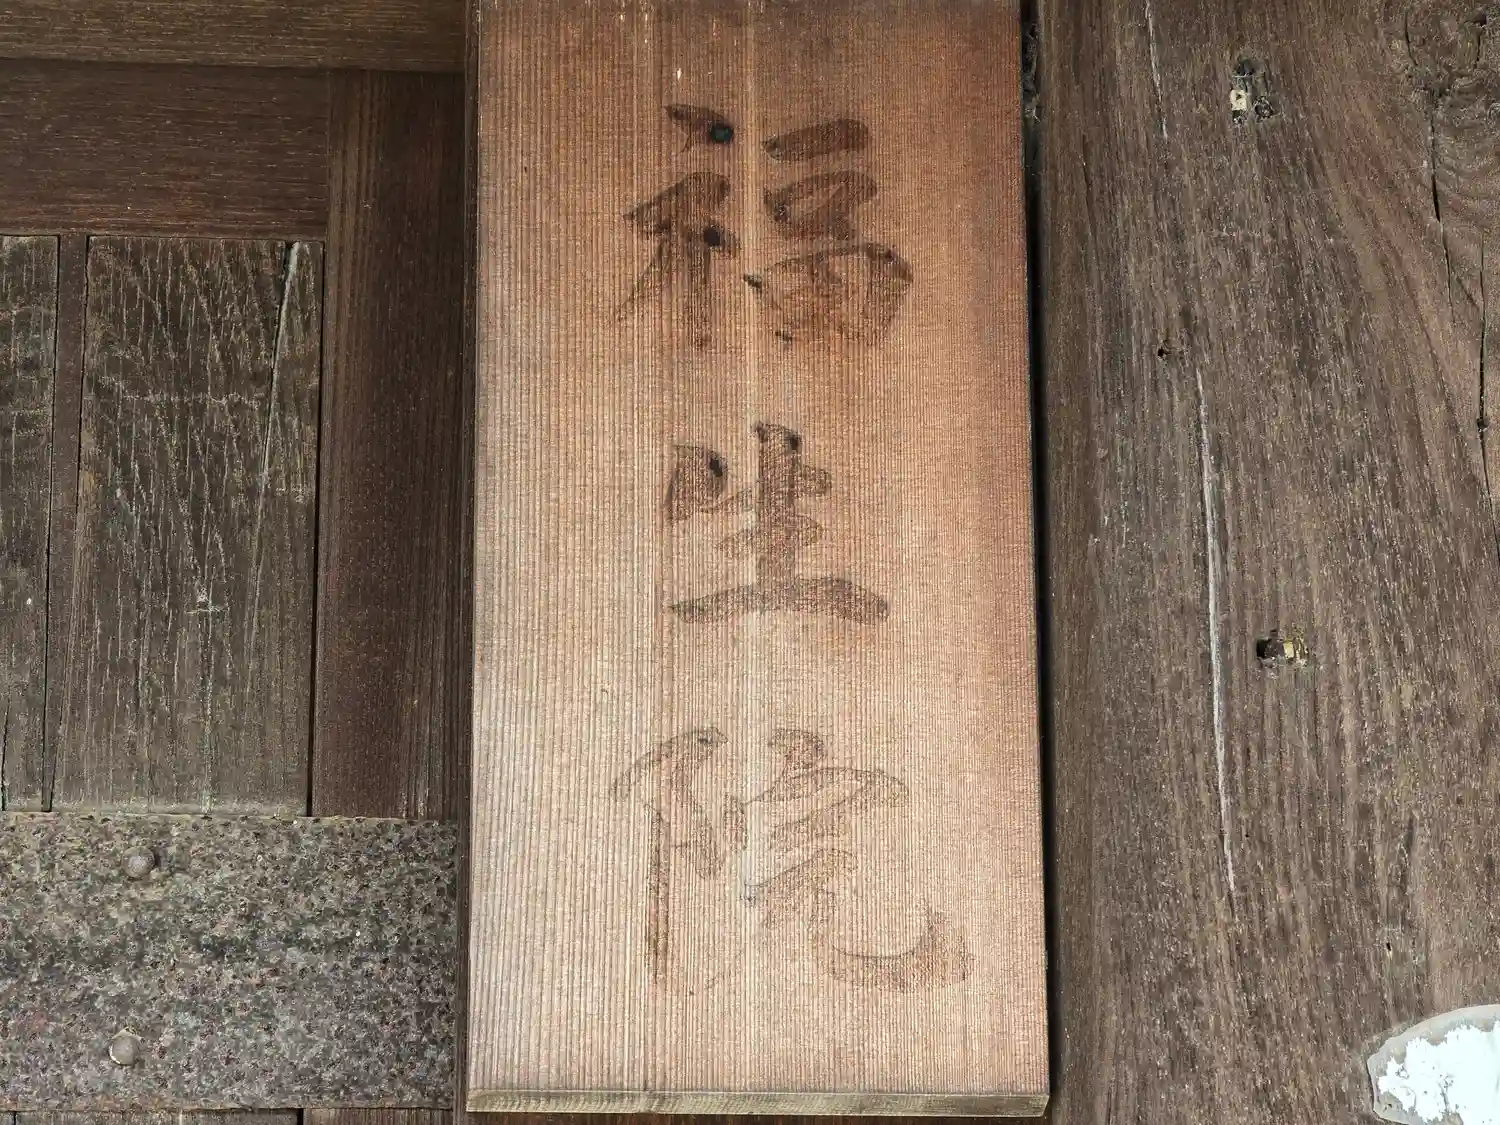 福生院